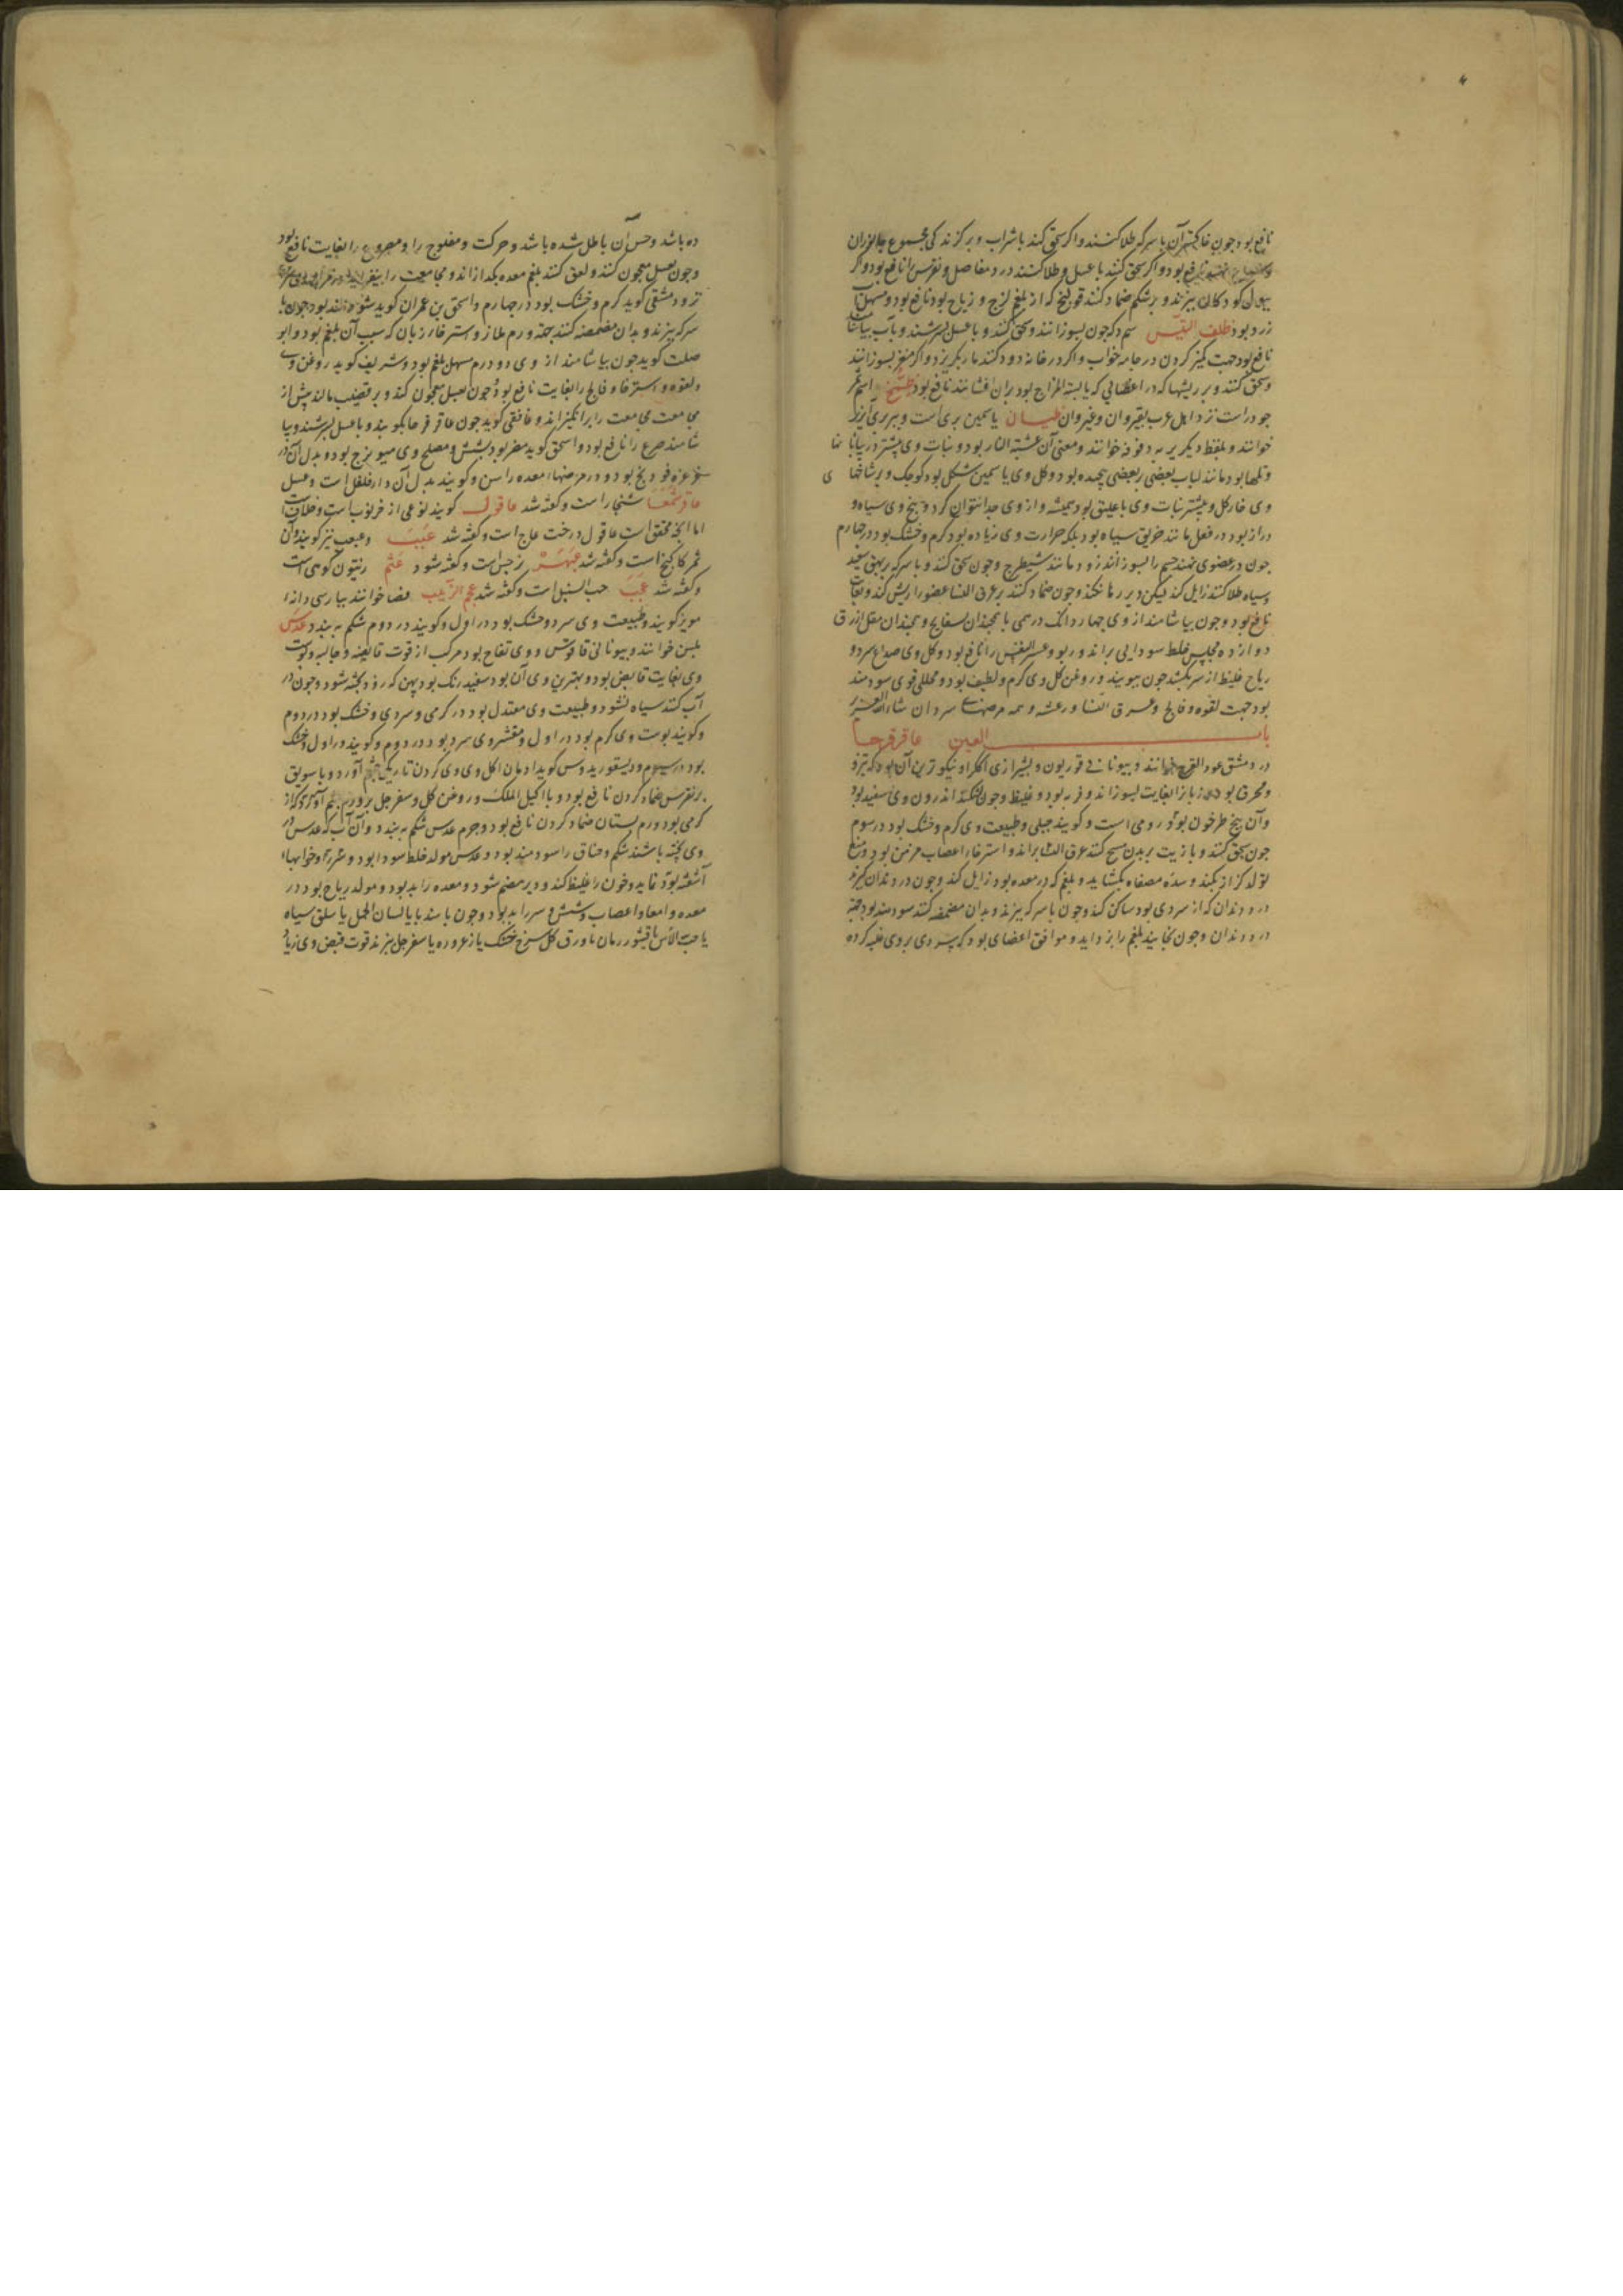 نافع بود چون خاکستر آن با سرکه طلا کنند و اگر سحق کنند با شراب و بر گزندگی مجموع جانوران
نافع بود و اگر سحق کنند با عسل و طلا کنند درد مفاصل و نقرس را نافع بود و اگر
ببول کودکان بپزند و بر شکم ضماد کنند قولنج که از بلغم لزج و ریاح بود نافع بود و مسهل
زرد بود ظلف التیس سم و که چون بسوزانند و سحق کنند و با عسل بسرشند و بآب بیاشامند
نافع بود جهت کمیز کردن در جامه خواب و اگر در خانه دود کنند مار بگریزد و اگر بسوزانند
و سحق کنند و بر ریشها که در اعضایی که یابسة المزاج بود بران افشانند نافع بود اسم
جو دراست نزد اهل عرب بقیروان و غیروان ظیان یاسمین بری است و ببربری
خوانند و بلفظ دیگر بربه دفوفه خوانند و معنی آن عشبة النار بود و نبات وی بیشتر در بیابانها
و تلها بود مانند لبلاب بعضی ببعضی پیچیده بود و گل وی یاسمین شکل بود کوچک و بر شاخهای
وی خار گل و بیشتر نبات وی با علیق بود همیشه و از وی جدا نتوان کرد و بیخ وی سیاه و
دراز بود در فعل مانند خربق سیاه بود بلکه حرارت وی زیاده بود گرم و خشک بود در چهارم
چون در عضوی نهند جسم را بسوزاند زود مانند شیطرج و چون سحق کنند و با سرکه بر بهق سفید
و سیاه طلا کنند زایل کند لیکن دیر رها نکند و چون ضماد کنند بر عرق النسا عضو را ریش کند و بغایت
نافع بود و چون بیاشامند از وی چهار دانک درمی با همچندان بسفایج و همچندان مقل ازرق
دوازده مجلس خلط سودایی براند و ربو و عسر النفس را نافع بود و گل وی صداع سرد و
ریاح غلیظ از سر بکشد چون ببویند و روغن گل وی گرم و لطیف بود و محللی قوی سودمند
بود جهت لقوه و فالج و عرق النسا و رعشه و همه مرضهاء سرد ان شاء الله العزیز
باب العین عاقرقرحا
در دمشق عود القرح خوانند و بیونانی فوریون و بشیرازی اککرا و نیکوترین آن بود که تیز
و محرق بود و زبان را بغایت بسوزاند و فربه بود و غلیظ و چون بشکند اندرون وی سفید بود
و آن بیخ طرخون بود رومی است و گویند جبلی و طبیعت وی گرم و خشک بود در سوم
چون سحق کنند و با زیت بر بدن مسح کنند عرق النسا براند و استرخاء اعصاب مزمن بود و منع
تولد کزاز بکند و سده مصفاه بگشاید و بلغم که در معده بود زایل کند و چون در دندان گیرند
درد دندان که از سردی بود ساکن کند و چون با سرکه بپزند و بدان مضمضه کنند سودمند بود جهة
درد دندان و چون بخایند بلغم را بزداید و موافق اعضای بود که سردی بر وی غلبه کرده
ده باشد و حس آن باطل شده باشد و حرکت و مفلوج را و مصروع را بغایت نافع بود
و چون بعسل معجون کنند و لعق کنند بلغم معده بگدازاند و مجامعت را
ترود مشقی گوید گرم و خشک بود در چهارم و اسحق بن عمران گوید بود چون با
سرکه بپزند و بدان مضمضه کنند جهة ورم ملازو استرخاء زبان که سبب آن بلغم بود و ابو
صلت گوید چون بیاشامند از وی دو درم مسهل بلغم بود و شریف گوید روغن وی
و لقوه و استرخا و فالج را بغایت نافع بود و چون بعسل معجون کنند و بر قضیب مالند پیش از
مجامعت مجامعت را برانگیزاند و غافقی گوید چون عاقرقرحا بکوبند و با عسل بسرشند و بیا
شامند صرع را نافع بود و اسحق گوید مضر بود بشش و مصلح وی میویزج بود و بدل آن در
غرغره فودنج بود و در مرضهاء معده راسن و گویند بدل آن دارفلفل است و عسل
عاقرشمعا شنجار است و گفته شد عاقول گویند نوعی از خرنوب است و خلاف است
اما انچه محقق است عاقول درخت حاج است و گفته شد عبب و عبعب نیز گویند و آن
ثمر کاکنج است و گفته شد عبهر نرجس است و گفته شود عتم زیتون کوهی است
و گفته شد عجب حب السنبل است و گفته شد عجم الزبیب فضا خوانند بپارسی دانه
مویز گویند و طبیعت وی سرد و خشک بود در اول و گویند در دوم شکم ببندد عدس
بلسن خوانند و بیونانی فاقوتس و وی تفاح بود مرکب از قوت قابضه و جالیه و پوست
وی بغایت قابض بود و بهترین وی آن بود سفید رنگ بود پهن که زود پخته شود و چون در
آب کنند سیاه نشود و طبیعت وی معتدل بود در گرمی و سردی و خشک بود در دوم
و گویند پوست وی گرم بود در اول و مقشر وی سرد بود در دوم و گویند در اول و خشک
بود در سوم و دیسقوریدوس گوید ادمان اکل وی کردن تاریکی چشم آورد و با سویق
بر نقرس ضماد کردن نافع بود و با اکلیل الملک و روغن گل و سفرجل بر ورم چشم که از
گرمی بود و ورم پستان ضماد کردن نافع بود و جرم عدس شکم ببندد و آن آب که عدس در
وی پخته باشند شکم و خناق را سودمند بود و عدس مولد خلط سودا بود و خوابهاء
آشفته بود نماید و خون را غلیظ کند و دیر هضم شود و معده را بد بود و مولد ریاح بود در
معده و امعا و اعصاب و شش و سر را بد بود و چون با هندبا یا لسان الحمل یا سلق سیاه
یا حب الآس یا قشور رمان یا ورق گل سرخ خشک یا زعرور یا سفرجل بپزند قوت قبض وی زیاد